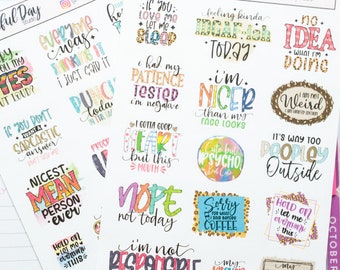 ful Day
if you
LOVE ME
LET ME
SLEEP
feeling kinda
TODAY
NO
IDEA
WHAT I'M
DOING
everyone
was
thinking it
I just said it
YES
I had my
PATIENCE
TESTED
I'm negative
i'm
NICER
than my
face looks
i am not
Weird
PUNCH
today
if you don't
want a
SARCASTIC
answer
I gotta good
HEART
but this
mouth
PSYCHO
IT'S WAY TOO
PEOPLEY
Outside
NICEST
MEAN
PERSON
ever
NOPE
not today
Sorry
FOR WHAT I SAID
BEFORE
COFFEE
HOLD ON
let me
overthink
this
HOLD ON
let me
overthink
THIS
i'm not
RESPONSIBLE
my
OCTOBER